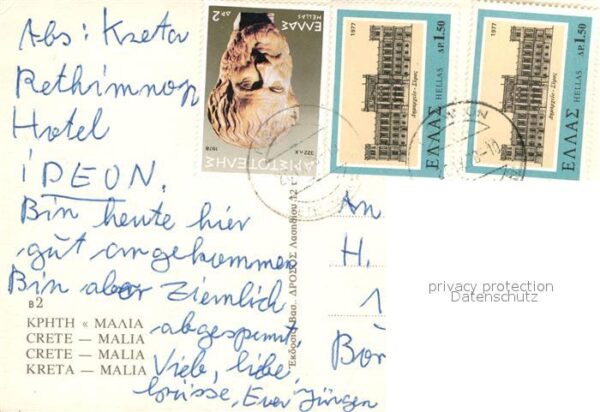 Abs: Kreta
Rethimnon
Hotel
IDEON.
Bin heute hier
gut angekommen
Bin aber ziemlich
abgespannt,
Viele, liebe
Grüsse, Euer Jürgen
B2
ΚΡΗΤΗ « ΜΑΛΙΑ
CRETE — MALIA
CRETE — MALIA
KRETA — MALIA
Εκδοσις Βασ. ΔΡΟΣΟΣ Λασηθίου 12
An
H.
1
Bör
ΕΛΛΑΣ
HELLAS
ΔΡ. 2
ΑΡΙΣΤΟΤΕΛΗΣ
322 π.Χ.
1978
1977
Δημαρχείο - Σύρος
ΕΛΛΑΣ HELLAS ΔΡ. 1.50
1977
Δημαρχείο - Σύρος
ΕΛΛΑΣ HELLAS ΔΡ. 1.50
privacy protection
Datenschutz